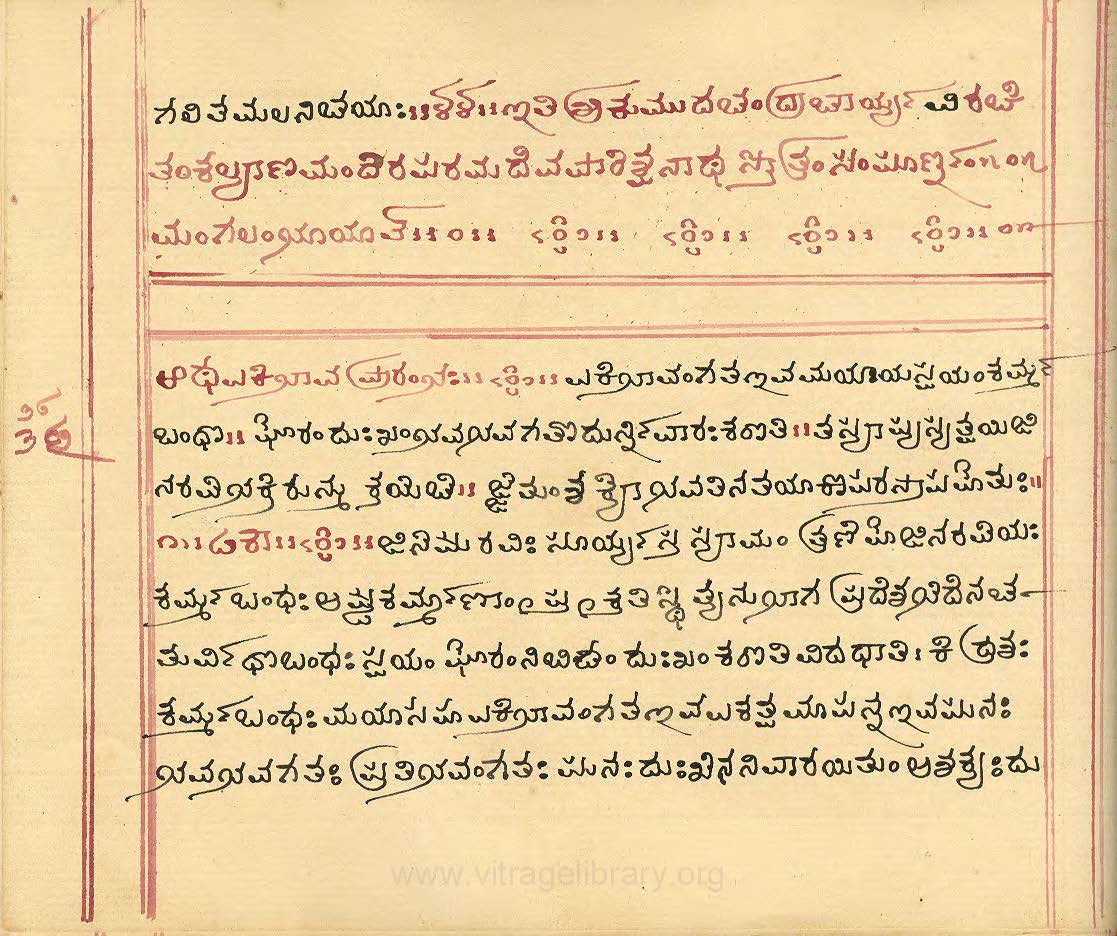 ಗಲಿತಮಲನಿಚಯಾಃ॥೪೪॥ಇತಿ ಶ್ರೀಕುಮುದಚಂದ್ರಾಚಾರ್ಯ್ಯ ವಿರಚಿ
ತಂಕಲ್ಯಾಣಮಂದಿರಪರಮದೇವಪಾರಿಶ್ವನಾಥ ಸ್ತೋತ್ರಂ ಸಂಪೂರ್ಣ್ನಂ॥೦॥
ಮಂಗಲಂಭೂಯಾತ್॥೦॥
ಅಥಎಕೀಭಾವ ಪ್ರಾರಂಭಃ॥ ಎಕೀಭಾವಂಗತಇವಮಯಾಯಸ್ವಯಂಕರ್ಮ್ಮ
ಬಂಧೋ॥ ಘೋರಂದುಃಖಂಭವಭವಗತೋದುರ್ನ್ನಿವಾರಃಕರೋತಿ॥ತಸ್ಯಾಪ್ಯಸ್ಯತ್ವಯಿಜಿ
ನರವೇಭಕ್ತಿರುನ್ಮು ಕ್ತಯೆಚೇ॥ ಜ್ಜೇತುಂಶ ಕ್ಯೋ ಭವತಿನತಯಾಕೋಪರಸ್ತಾಪಹೇತುಃ॥
೧॥ ಟೀಕಾ॥ ಜಿನಏವ ರವಿಃ ಸೂರ್ಯ್ಯಸ್ತ ಸ್ಯಾಮಂ ತ್ರಣೆ ಹೇಜಿನರವಿಯಃ
ಕರ್ಮ್ಮಬಂಧಃ ಅಷ್ಟಕರ್ಮ್ಮಣಾಂ ಪ್ರಕೃತಿಸ್ಥಿತ್ಯನುಭಾಗ ಪ್ರದೇಶಭೇದೇನಚ
ತುರ್ವಿಧೋಬಂಧಃ ಸ್ವಯಂ ಘೋರಂನಿಬಿಡಂ ದುಃಖಂ ಕರೋತಿ ವಿದಧಾತಿ। ಕೀದ್ರಶಃ
ಕರ್ಮ್ಮಬಂಧಃ ಮಯಾಸಹಎಕೀಭಾವಂಗತಇವಎಕತ್ವಮಾಪನ್ನಇವಪುನಃ
ಭವಭವಗತಃ ಪ್ರತಿಭವಂಗತಃ ಪುನಃ ದುಃಖೇನನಿವಾರಯಿತುಂ ಅಶಕ್ಯಃದು
www.vitragelibrary.org